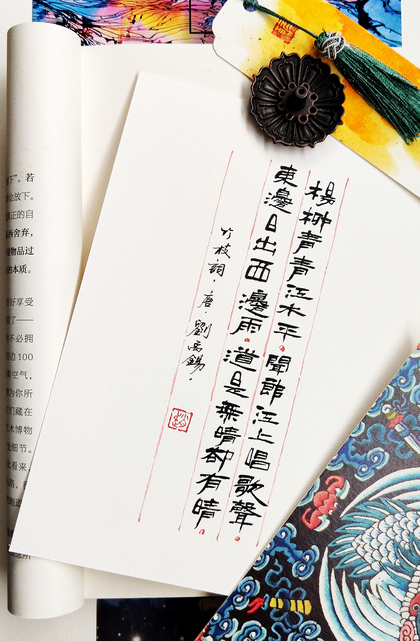 楊柳青青江水平。聞郎江上唱歌聲。
東邊日出西邊雨。道是無晴却有晴。
竹枝詞。唐。劉禹錫。
下”，若
会放下。
正的自
舍弃，
物品过
的本质。
好享受
了——
不必拥
边100
空气，
为你所
们藏在
术博物
细节。
看来，